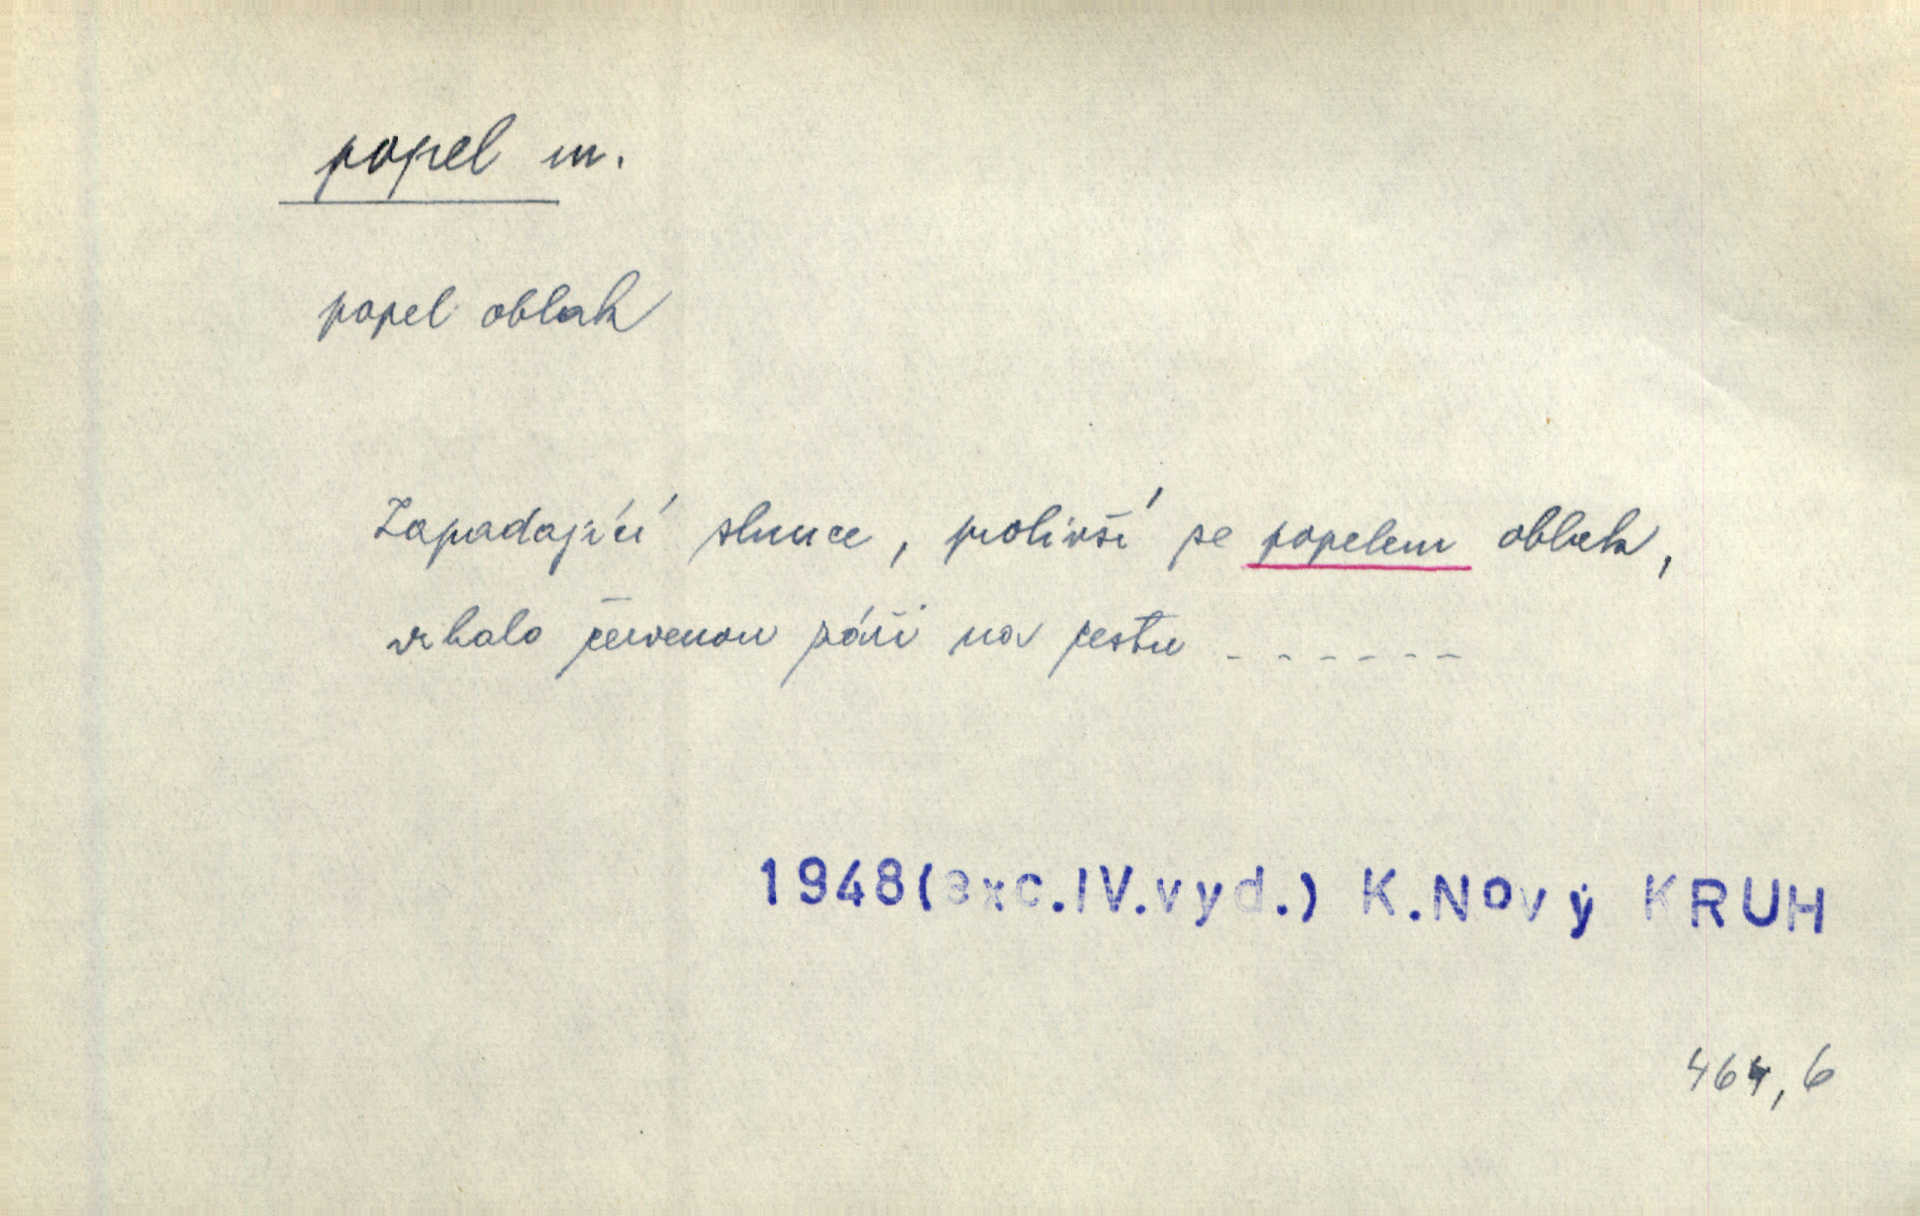 popel m.
popel oblak
Zapadající slunce, prolivší se popelem oblak,
vrhalo červenou záři na cestu ------
1948(exc.IV.vyd.) K.Nový KRUH
464,6